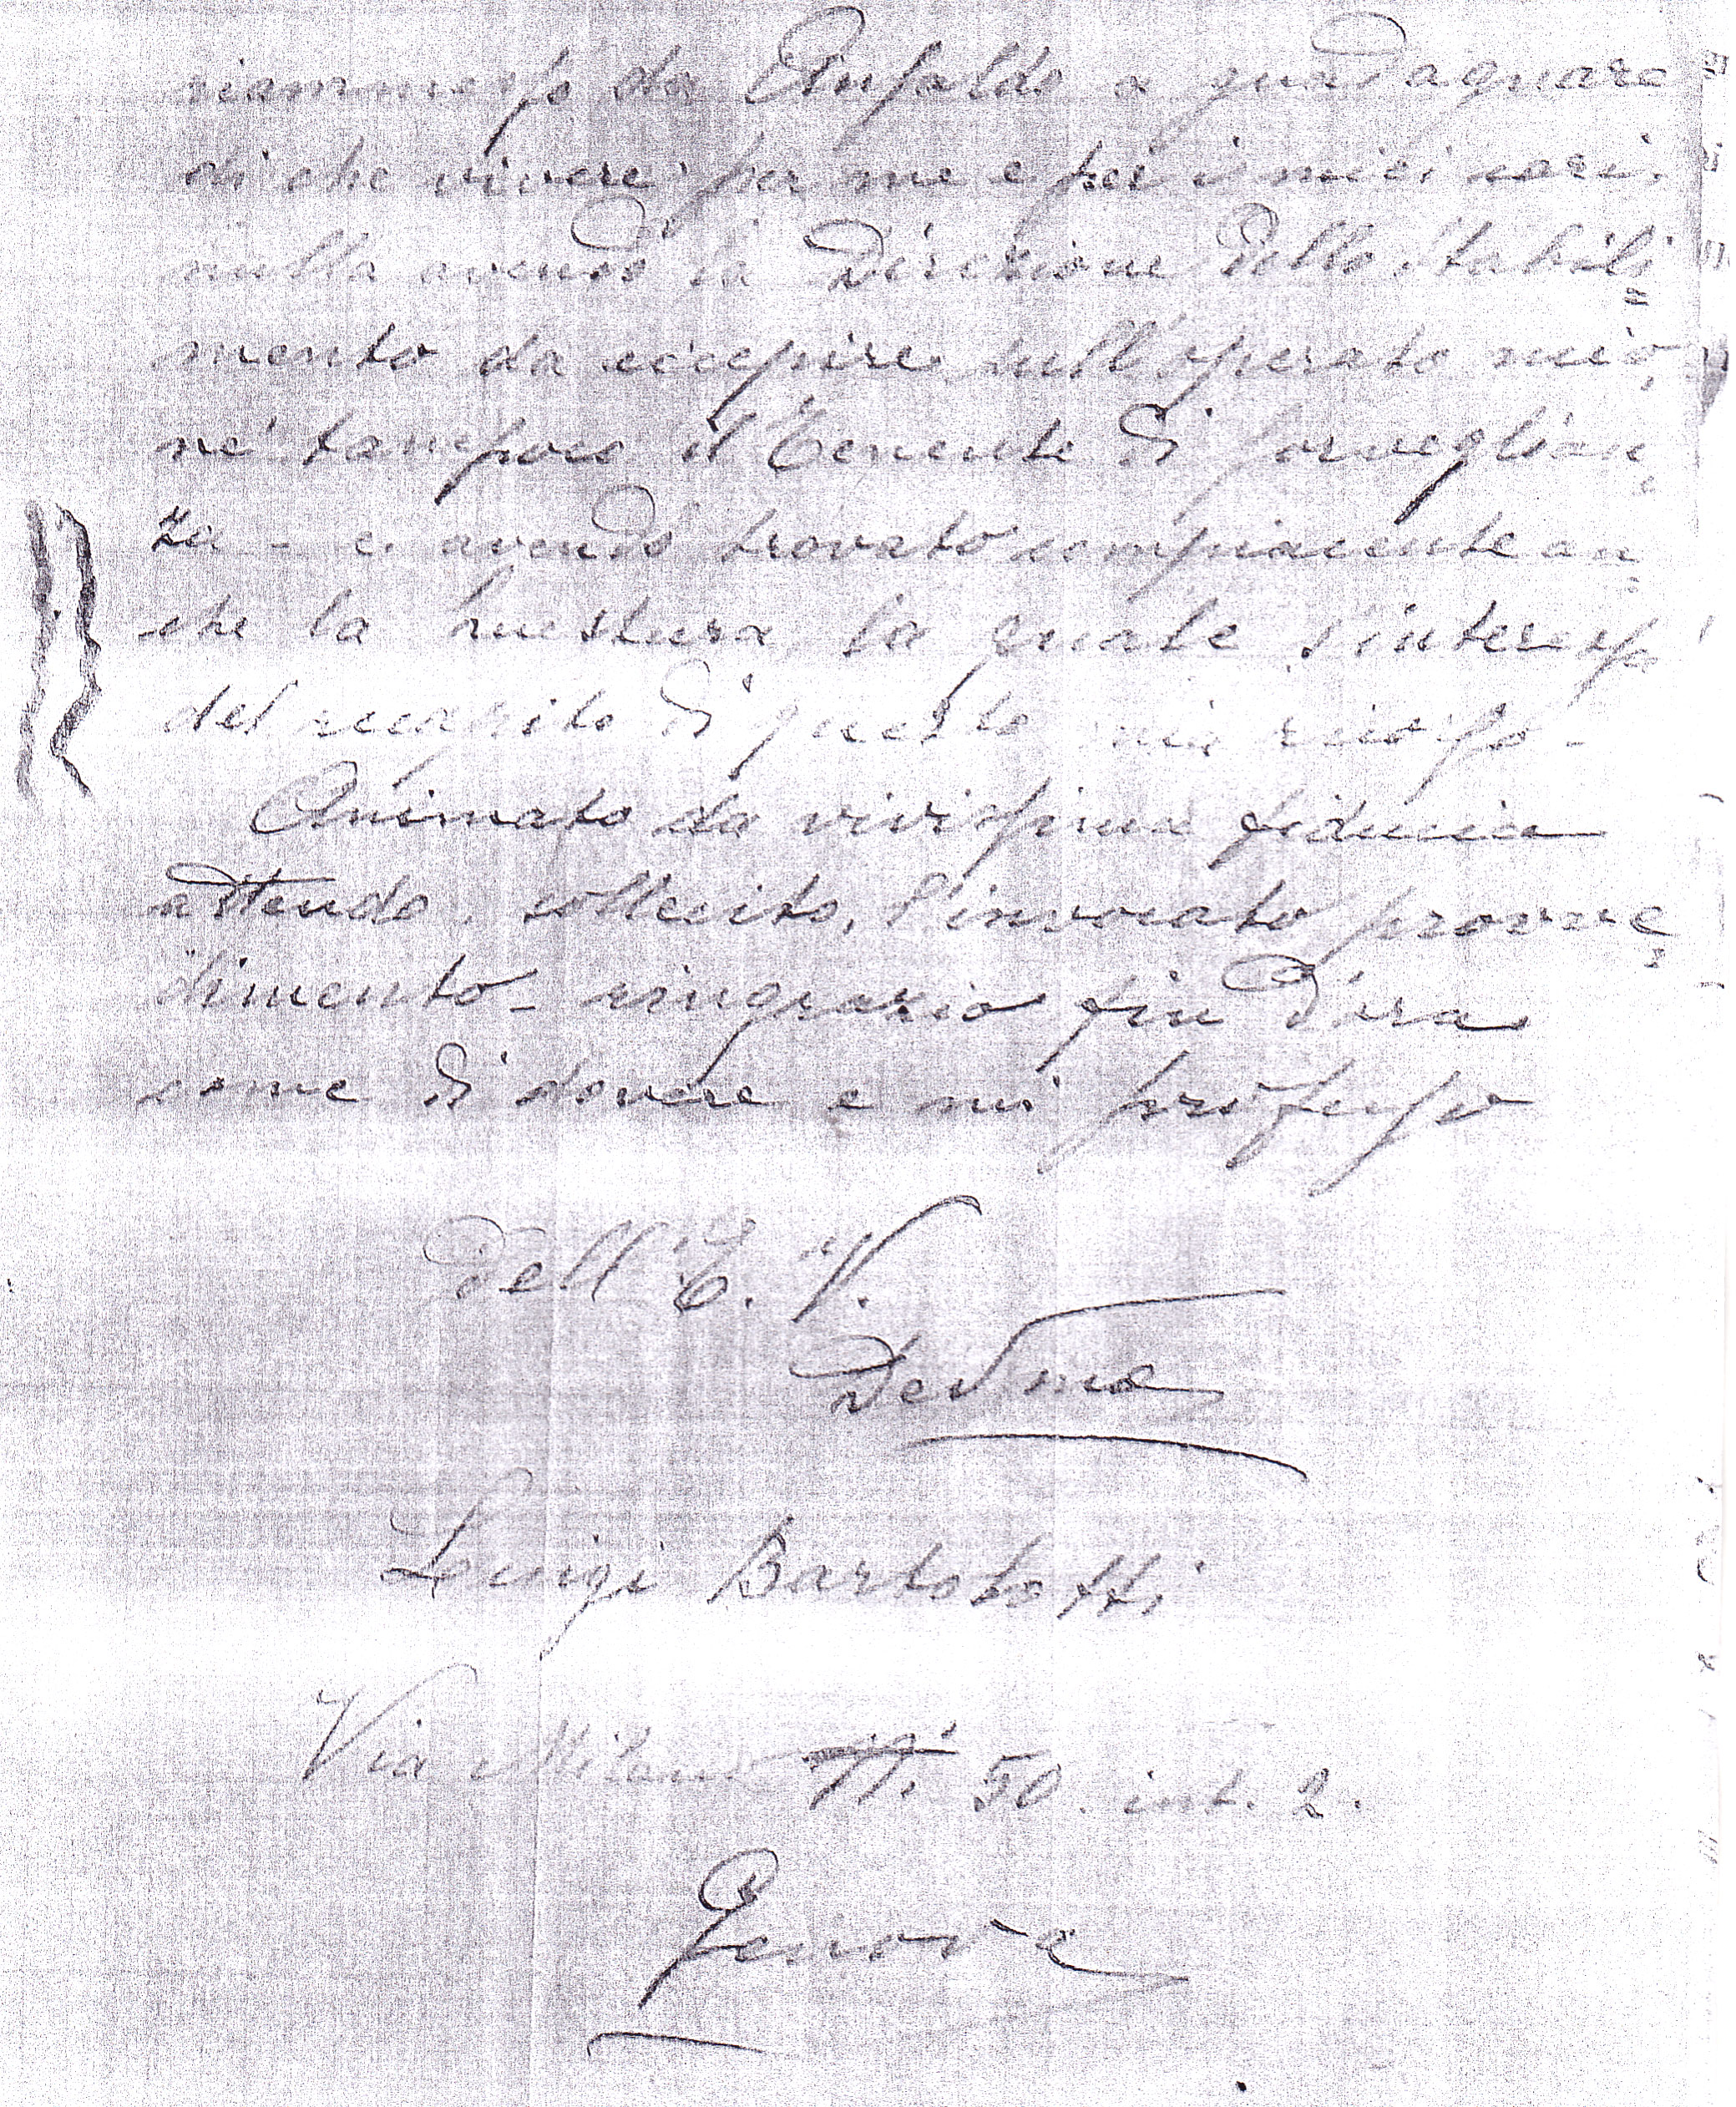 riammesso da Ansaldo a guadagnare
di che vivere per me e pei i miei cari,
nulla avendo la Direzione dello Stabili=
mento da eccepire sull'operato mio,
nè tampoco il Tenente di sorveglian=
za - e avendo trovato compiacente an=
che la Questura, la quale s'interessò
del recapito di questo mio
Animato da vivissima fiducia
attendo, sollecito, l'invocato provve=
dimento - ringrazio fin d'ora
come di dovere e mi professo
Dell'E. V.
Dev.mo
Luigi Bartolotti
Via Milano N. 50. int. 2.
Genova